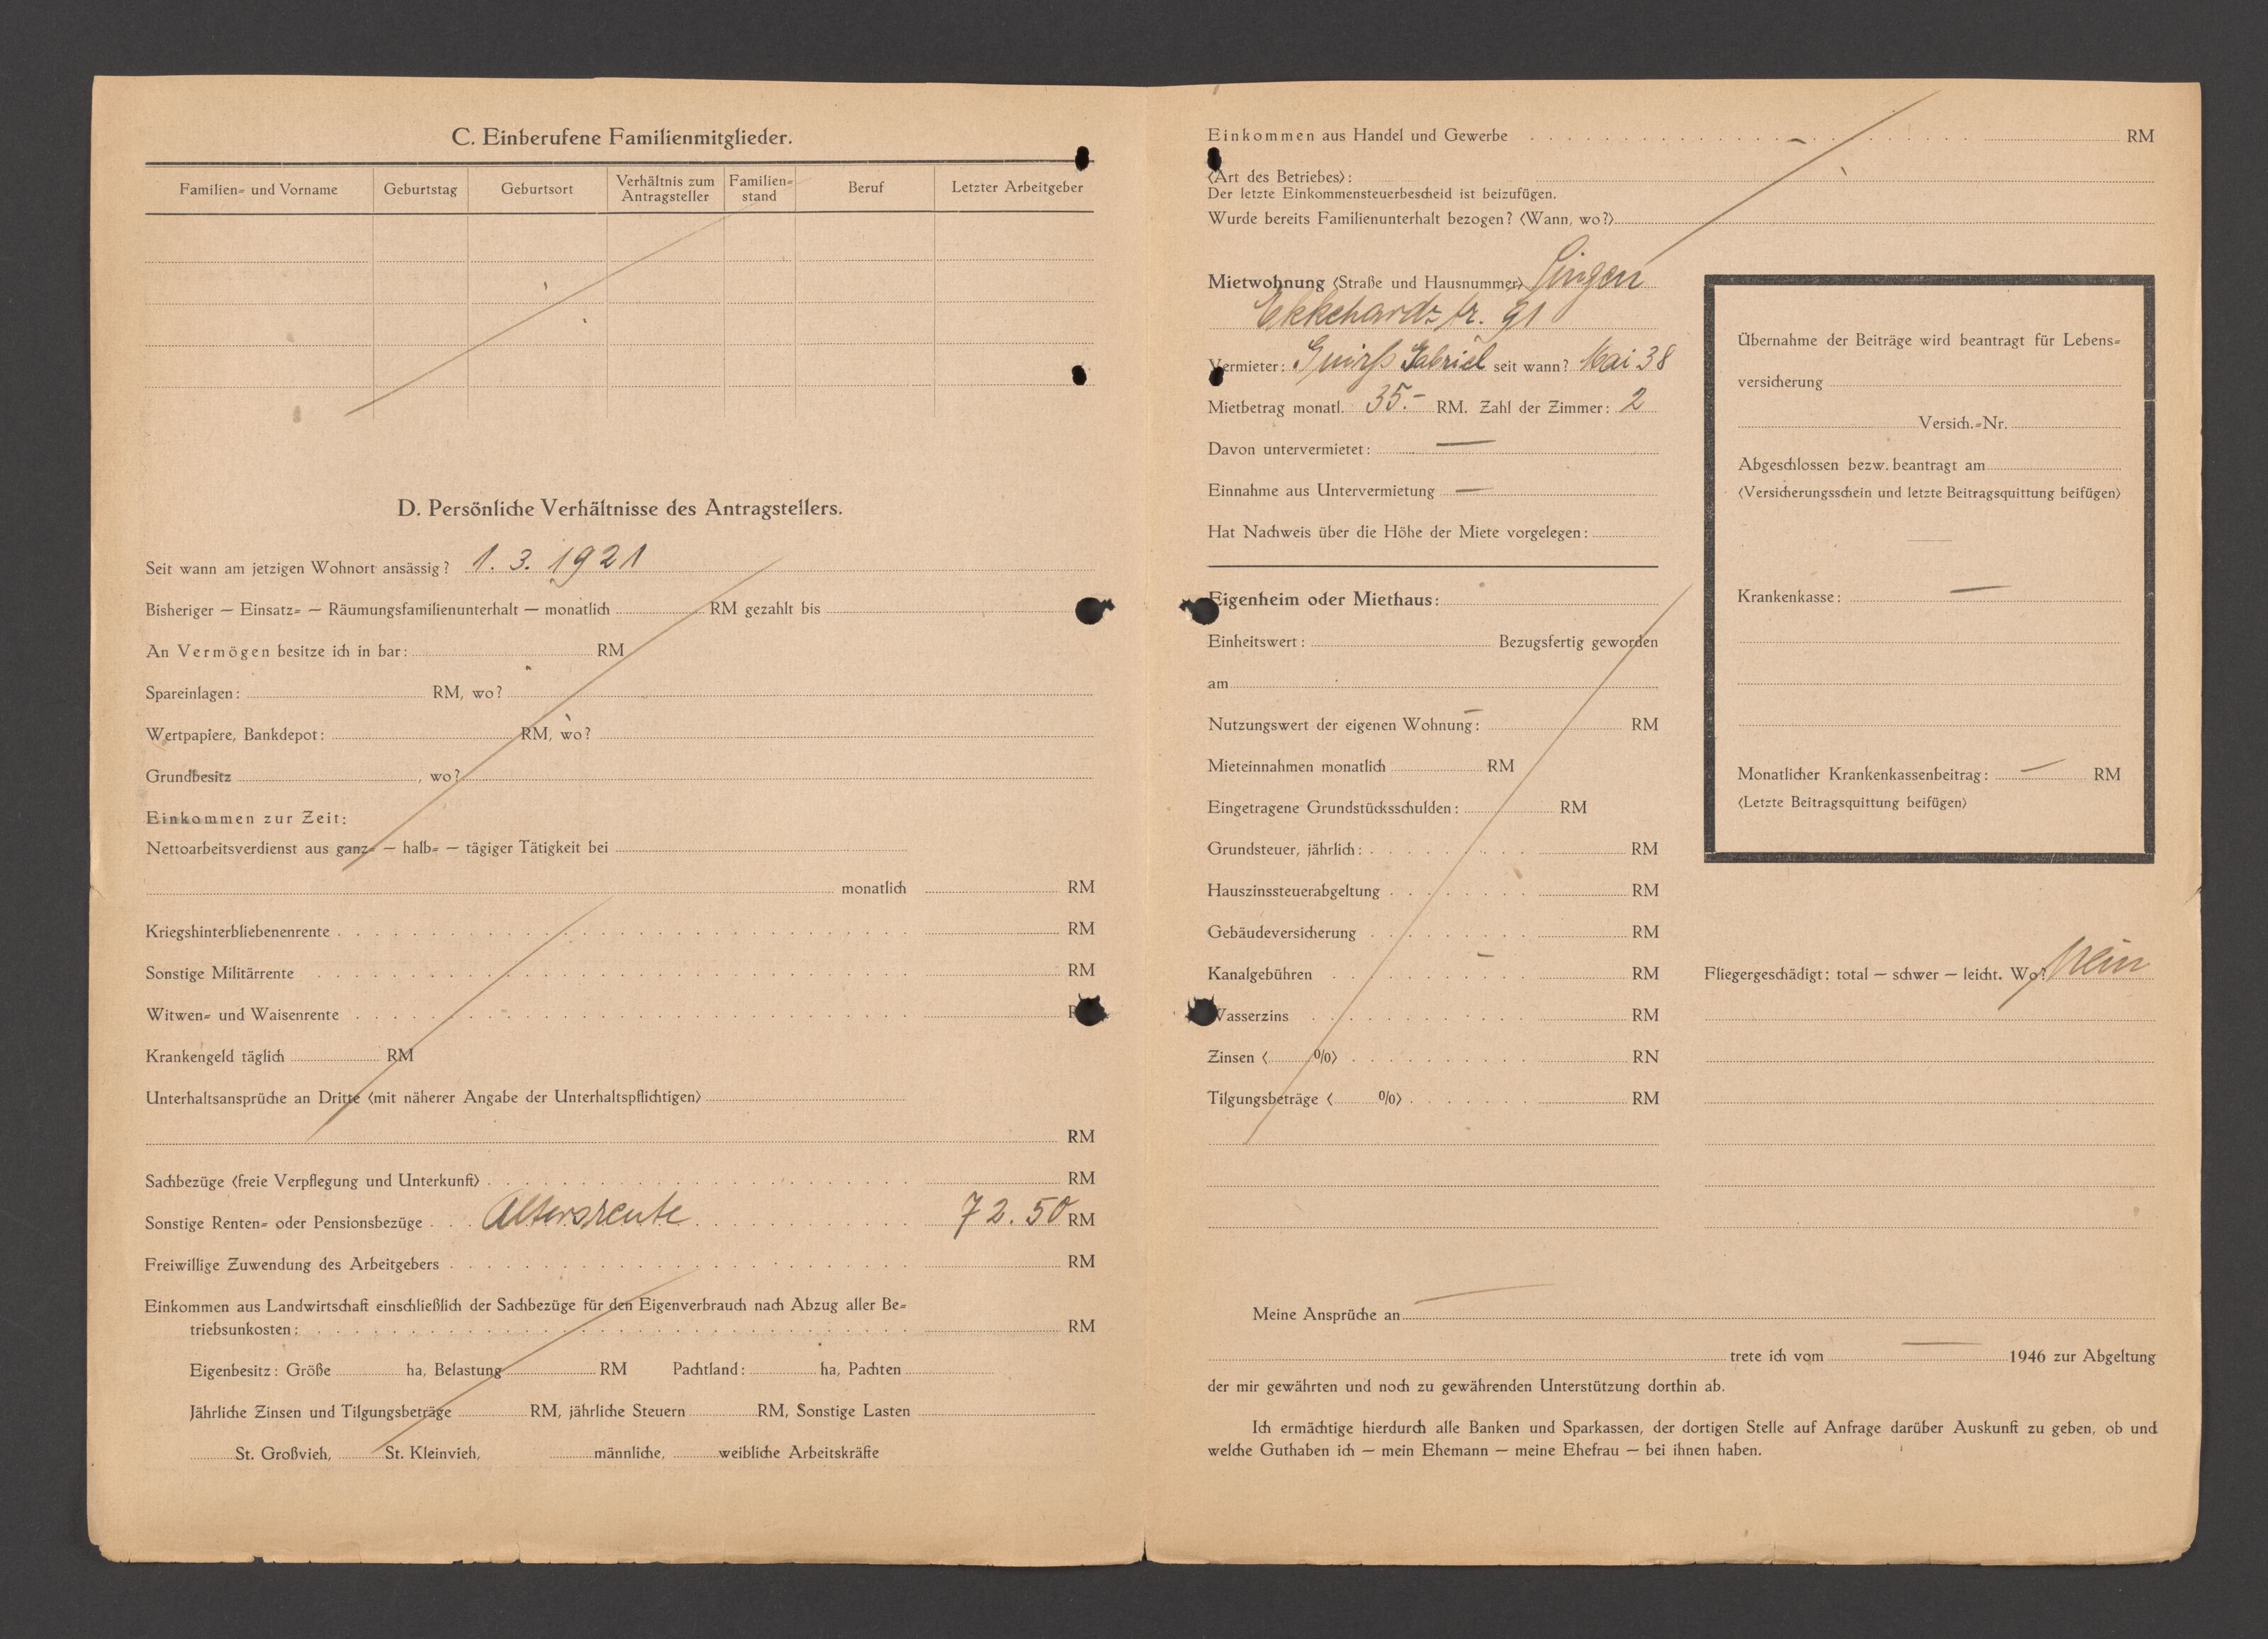 C. Einberufene Familienmitglieder.
Familien= und Vorname Geburtstag Geburtsort Verhältnis zum Antragsteller Familien= stand Beruf Letzter Arbeitgeber
D. Persönliche Verhältnisse des Antragstellers.
Seit wann am jetzigen Wohnort ansässig? 1. 3. 1921
Bisheriger — Einsatz= — Räumungsfamilienunterhalt — monatlich RM gezahlt bis
An Vermögen besitze ich in bar: RM
Spareinlagen: RM, wo?
Wertpapiere, Bankdepot: RM, wo?
Grundbesitz , wo?
Einkommen zur Zeit:
Nettoarbeitsverdienst aus ganz= — halb= — tägiger Tätigkeit bei
monatlich RM
Kriegshinterbliebenenrente RM
Sonstige Militärrente RM
Witwen= und Waisenrente
Krankengeld täglich RM
Unterhaltsansprüche an Dritte (mit näherer Angabe der Unterhaltspflichtigen)
RM
Sachbezüge (freie Verpflegung und Unterkunft) RM
Sonstige Renten= oder Pensionsbezüge Altersrente 72.50 RM
Freiwillige Zuwendung des Arbeitgebers RM
Einkommen aus Landwirtschaft einschließlich der Sachbezüge für den Eigenverbrauch nach Abzug aller Be=
triebsunkosten: RM
Eigenbesitz: Größe ha, Belastung RM Pachtland: ha, Pachten
Jährliche Zinsen und Tilgungsbeträge RM, jährliche Steuern RM, Sonstige Lasten
St. Großvieh, St. Kleinvieh, männliche, weibliche Arbeitskräfte
Einkommen aus Handel und Gewerbe RM
(Art des Betriebes):
Der letzte Einkommensteuerbescheid ist beizufügen.
Wurde bereits Familienunterhalt bezogen? (Wann, wo?)
Mietwohnung (Straße und Hausnummer) Singen
Ekkehardstr. 91
Vermieter: Gabriel seit wann? Mai 38
Mietbetrag monatl. 35.- RM. Zahl der Zimmer: 2
Davon untervermietet: —
Einnahme aus Untervermietung —
Hat Nachweis über die Höhe der Miete vorgelegen:
Eigenheim oder Miethaus:
Einheitswert: Bezugsfertig geworden
am
Nutzungswert der eigenen Wohnung: RM
Mieteinnahmen monatlich RM
Eingetragene Grundstücksschulden: RM
Grundsteuer, jährlich: RM
Hauszinssteuerabgeltung RM
Gebäudeversicherung RM
Kanalgebühren RM
Wasserzins RM
Zinsen ( %) RN
Tilgungsbeträge ( %) RM
Übernahme der Beiträge wird beantragt für Lebens=
versicherung
Versich.=Nr.
Abgeschlossen bezw. beantragt am
(Versicherungsschein und letzte Beitragsquittung beifügen)
Krankenkasse: —
Monatlicher Krankenkassenbeitrag: — RM
(Letzte Beitragsquittung beifügen)
Fliegergeschädigt: total — schwer — leicht. Wo? Nein
Meine Ansprüche an —
trete ich vom — 1946 zur Abgeltung
der mir gewährten und noch zu gewährenden Unterstützung dorthin ab.
Ich ermächtige hierdurch alle Banken und Sparkassen, der dortigen Stelle auf Anfrage darüber Auskunft zu geben, ob und
welche Guthaben ich — mein Ehemann — meine Ehefrau — bei ihnen haben.